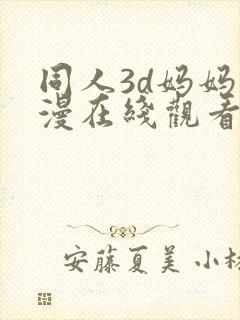 同人3d妈妈
漫在綫觀看
安藤夏美 小林